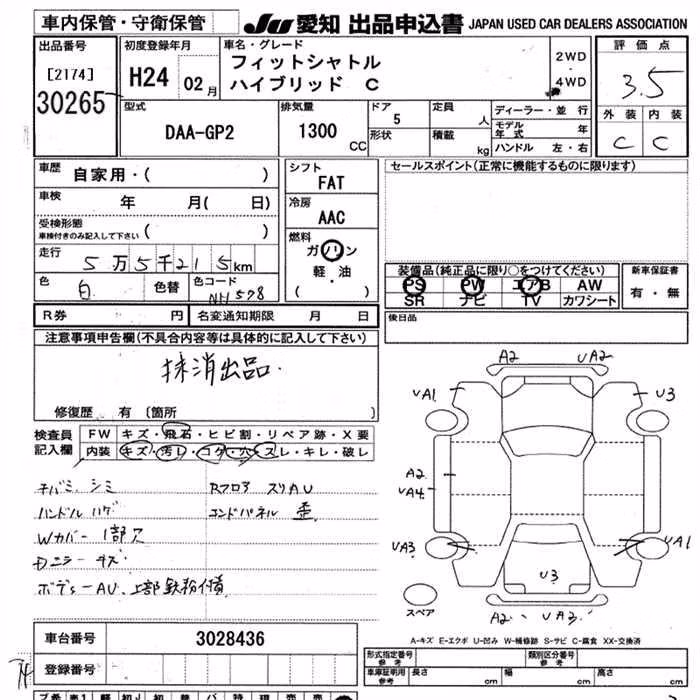 車内保管・守衛保管
JU 愛知 出品申込書 JAPAN USED CAR DEALERS ASSOCIATION
出品番号
[2174]
30265
初度登録年月
H24 02月
車名・グレード
フィットシャトル
ハイブリッド C
2WD
・
4WD
評価点
3.5
外装 内装
C C
型式
DAA-GP2
排気量
1300 CC
ドア
5
形状
定員
人
積載
kg
ディーラー・並行
モデル年式 年
ハンドル 左・右
車歴
自家用・( )
車検
年 月( 日)
受検形態
車検付きのみ記入して下さい ( )
走行
5万5千215km
色
白
色替
色コード
NH578
シフト
FAT
冷房
AAC
燃料
ガソリン
軽・油
( )
セールスポイント(正常に機能するものに限ります)
装備品(純正品に限り○をつけてください)
PS PW エアB AW
SR ナビ TV カワシート
新車保証書
有・無
後日品
R券 円
名変通知期限 月 日
注意事項申告欄(不具合内容等は具体的に記入して下さい)
抹消出品.
修復歴 有 〔箇所 〕
検査員記入欄
FW キズ・飛石・ヒビ割・リペア跡・X要
内装 キズ・汚レ・コゲ・穴・スレ・キレ・破レ
シミ
Rフロア スリAU
ハンドル ハゲ
コンドパネル 歪
Wカバー 1部欠
キズ
ボデーAU
上部鉄粉付積
A2 UA2
UA1 U3
A2
UA4
UA3 UA1
U3
A2 UA2
スペア
A-キズ E-エクボ U-凹み W-補修跡 S-サビ C-腐食 XX-交換済
車台番号
3028436
登録番号
形式指定番号
参考
類別区分番号
参考
車庫証明用
参考
長さ cm
幅 cm
高さ cm